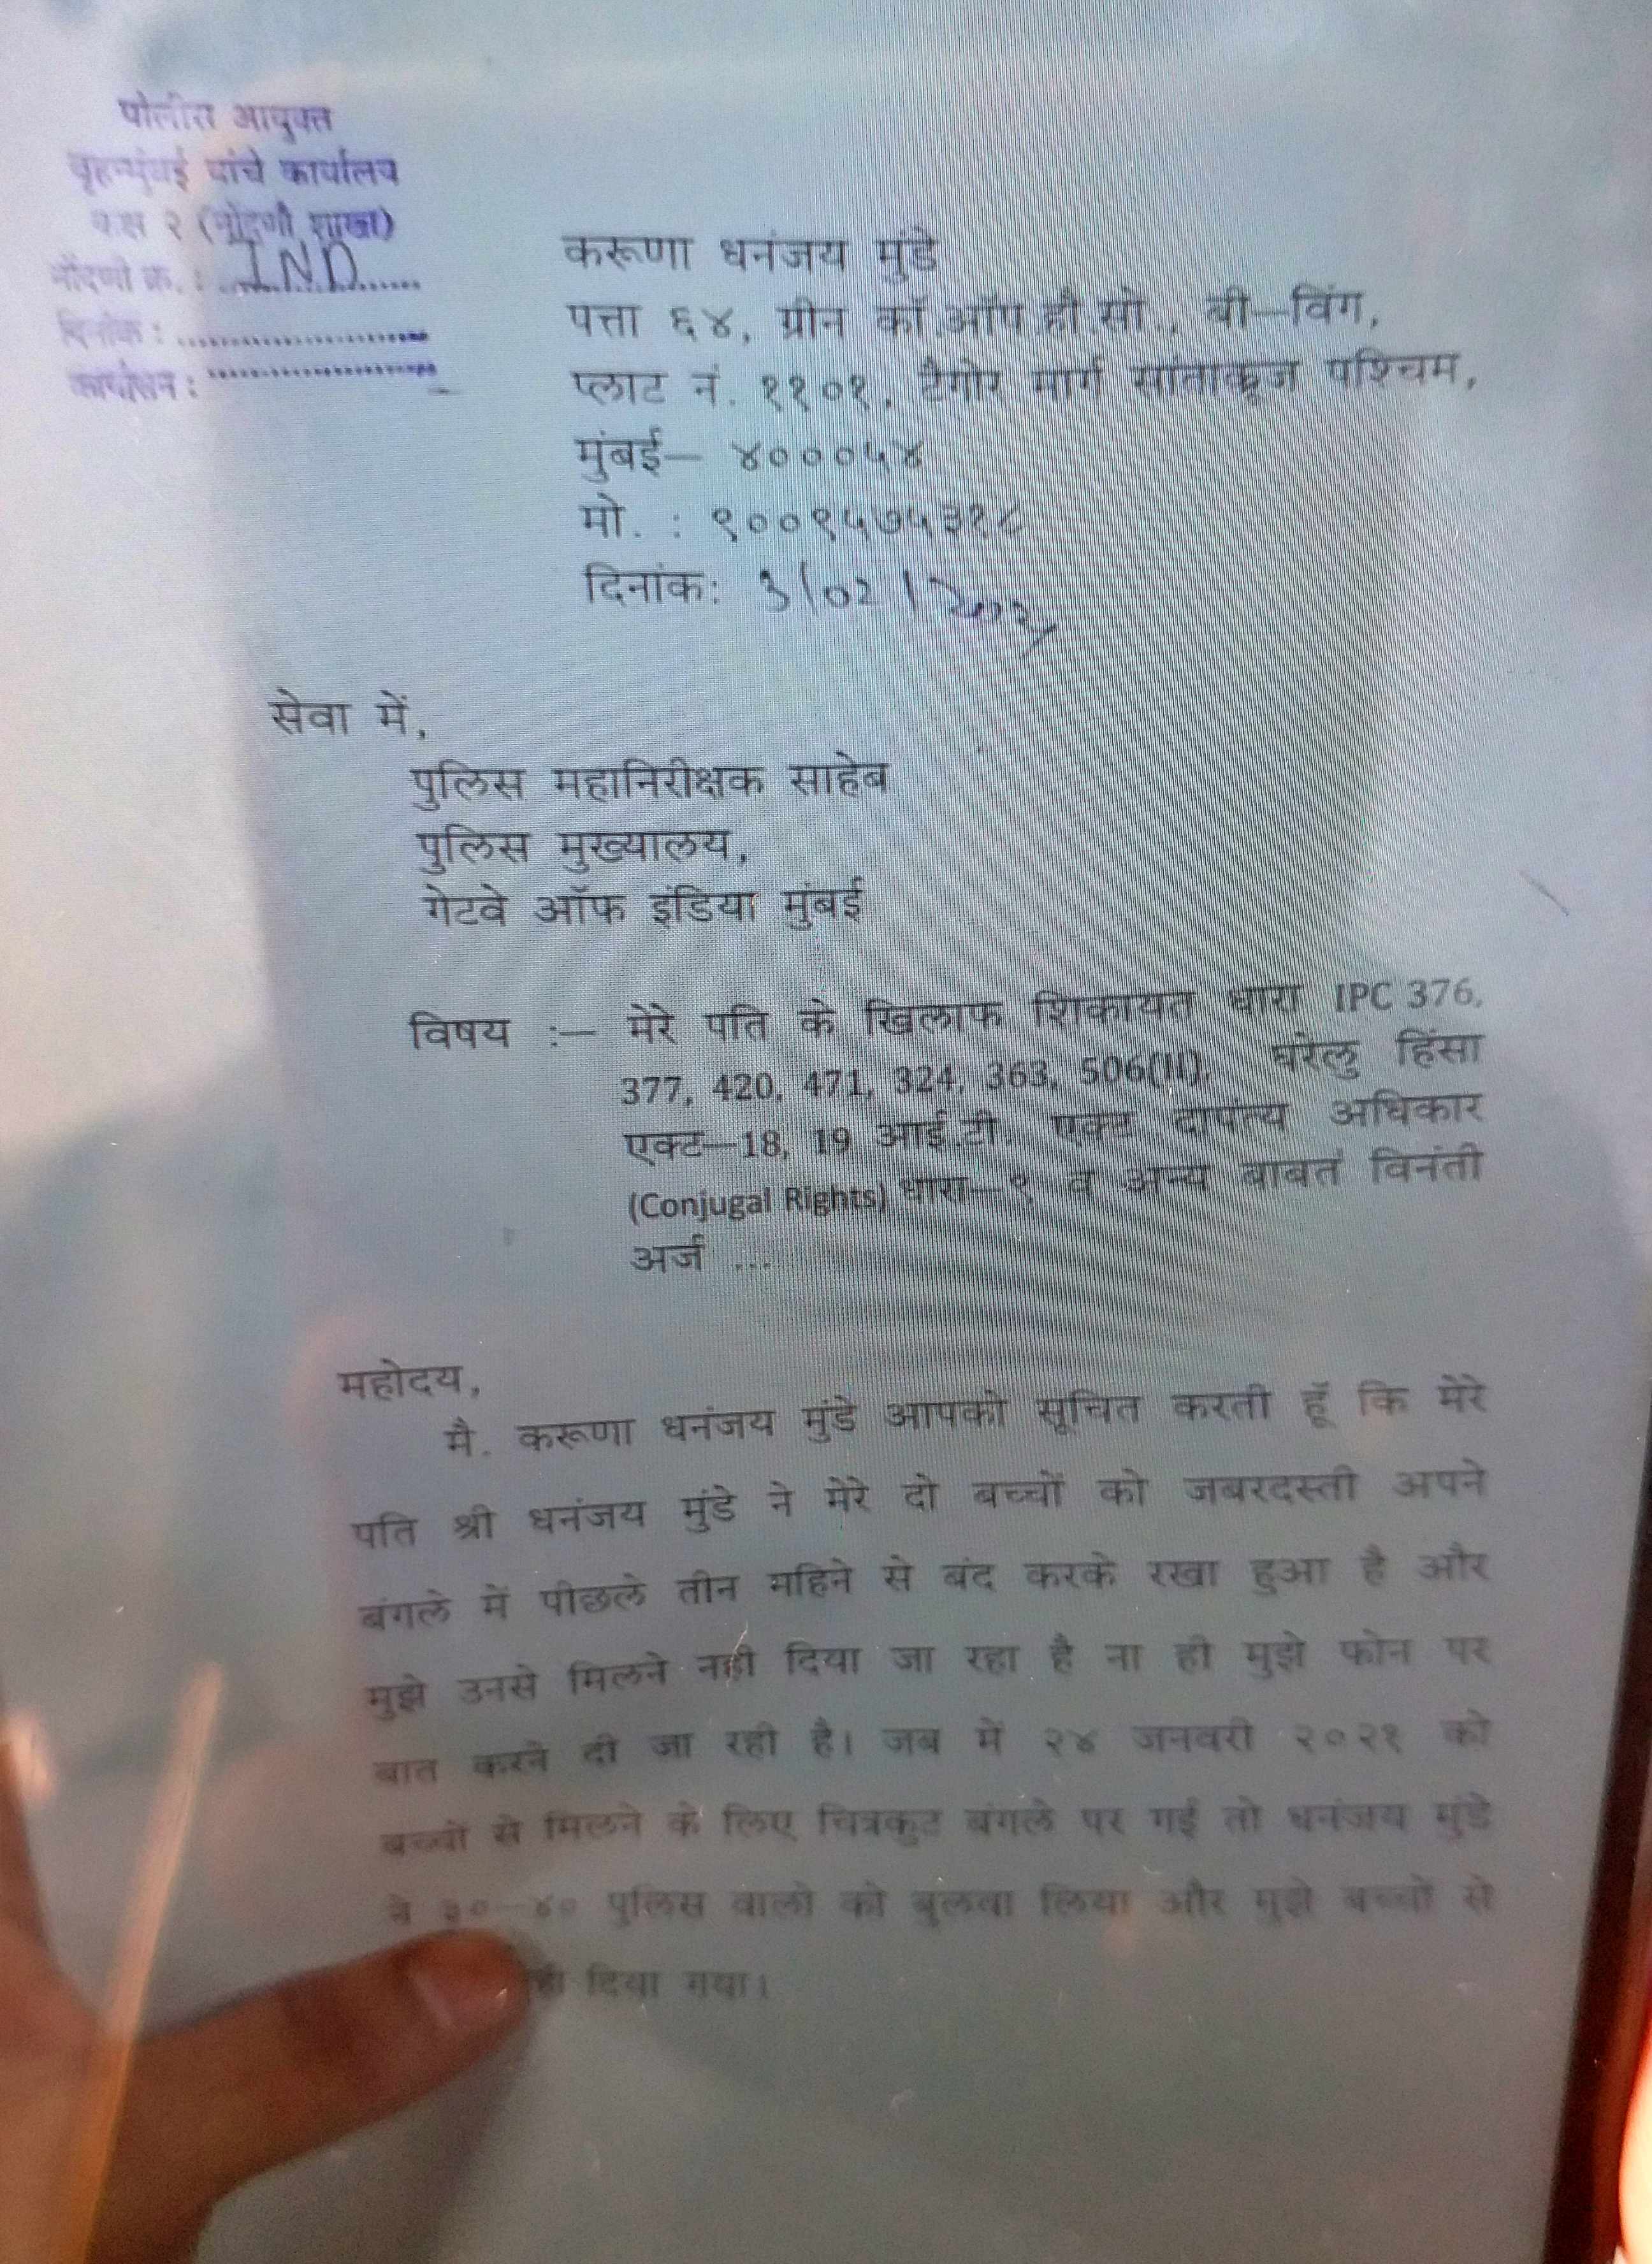 पोलीस आयुक्त
बृहन्मुंबई यांचे कार्यालय
कक्ष २ (नोंदणी शाखा)
नोंदणी क्र. : IND
दिनांक :
कार्यासन :
करूणा धनंजय मुंडे
पत्ता ६४, ग्रीन कॉ.ऑप.हौ.सो., बी–विंग,
प्लाट नं. ११०१, टैगोर मार्ग सांताक्रूज पश्चिम,
मुंबई– ४०००५४
मो. : ९००९५७५३१८
दिनांक: 3/02/
सेवा में,
पुलिस महानिरीक्षक साहेब
पुलिस मुख्यालय,
गेटवे ऑफ इंडिया मुंबई
विषय :– मेरे पति के खिलाफ शिकायत धारा IPC 376,
377, 420, 471, 324, 363, 506(II), घरेलु हिंसा
एक्ट–18, 19 आई.टी. एक्ट दापंत्य अधिकार
(Conjugal Rights) धारा–९ व अन्य बाबत विनंती
अर्ज ...
महोदय,
मै. करूणा धनंजय मुंडे आपको सूचित करती हूँ कि मेरे
पति श्री धनंजय मुंडे ने मेरे दो बच्चों को जबरदस्ती अपने
बंगले में पीछले तीन महिने से बंद करके रखा हुआ है और
मुझे उनसे मिलने नही दिया जा रहा है ना ही मुझे फोन पर
बात करने दी जा रही है। जब में २४ जनवरी २०२१ को
बच्चों से मिलने के लिए चित्रकुट बंगले पर गई तो धनंजय मुंडे
ने ३०–४० पुलिस वालो को बुलवा लिया और मुझे बच्चों से
दिया गया।